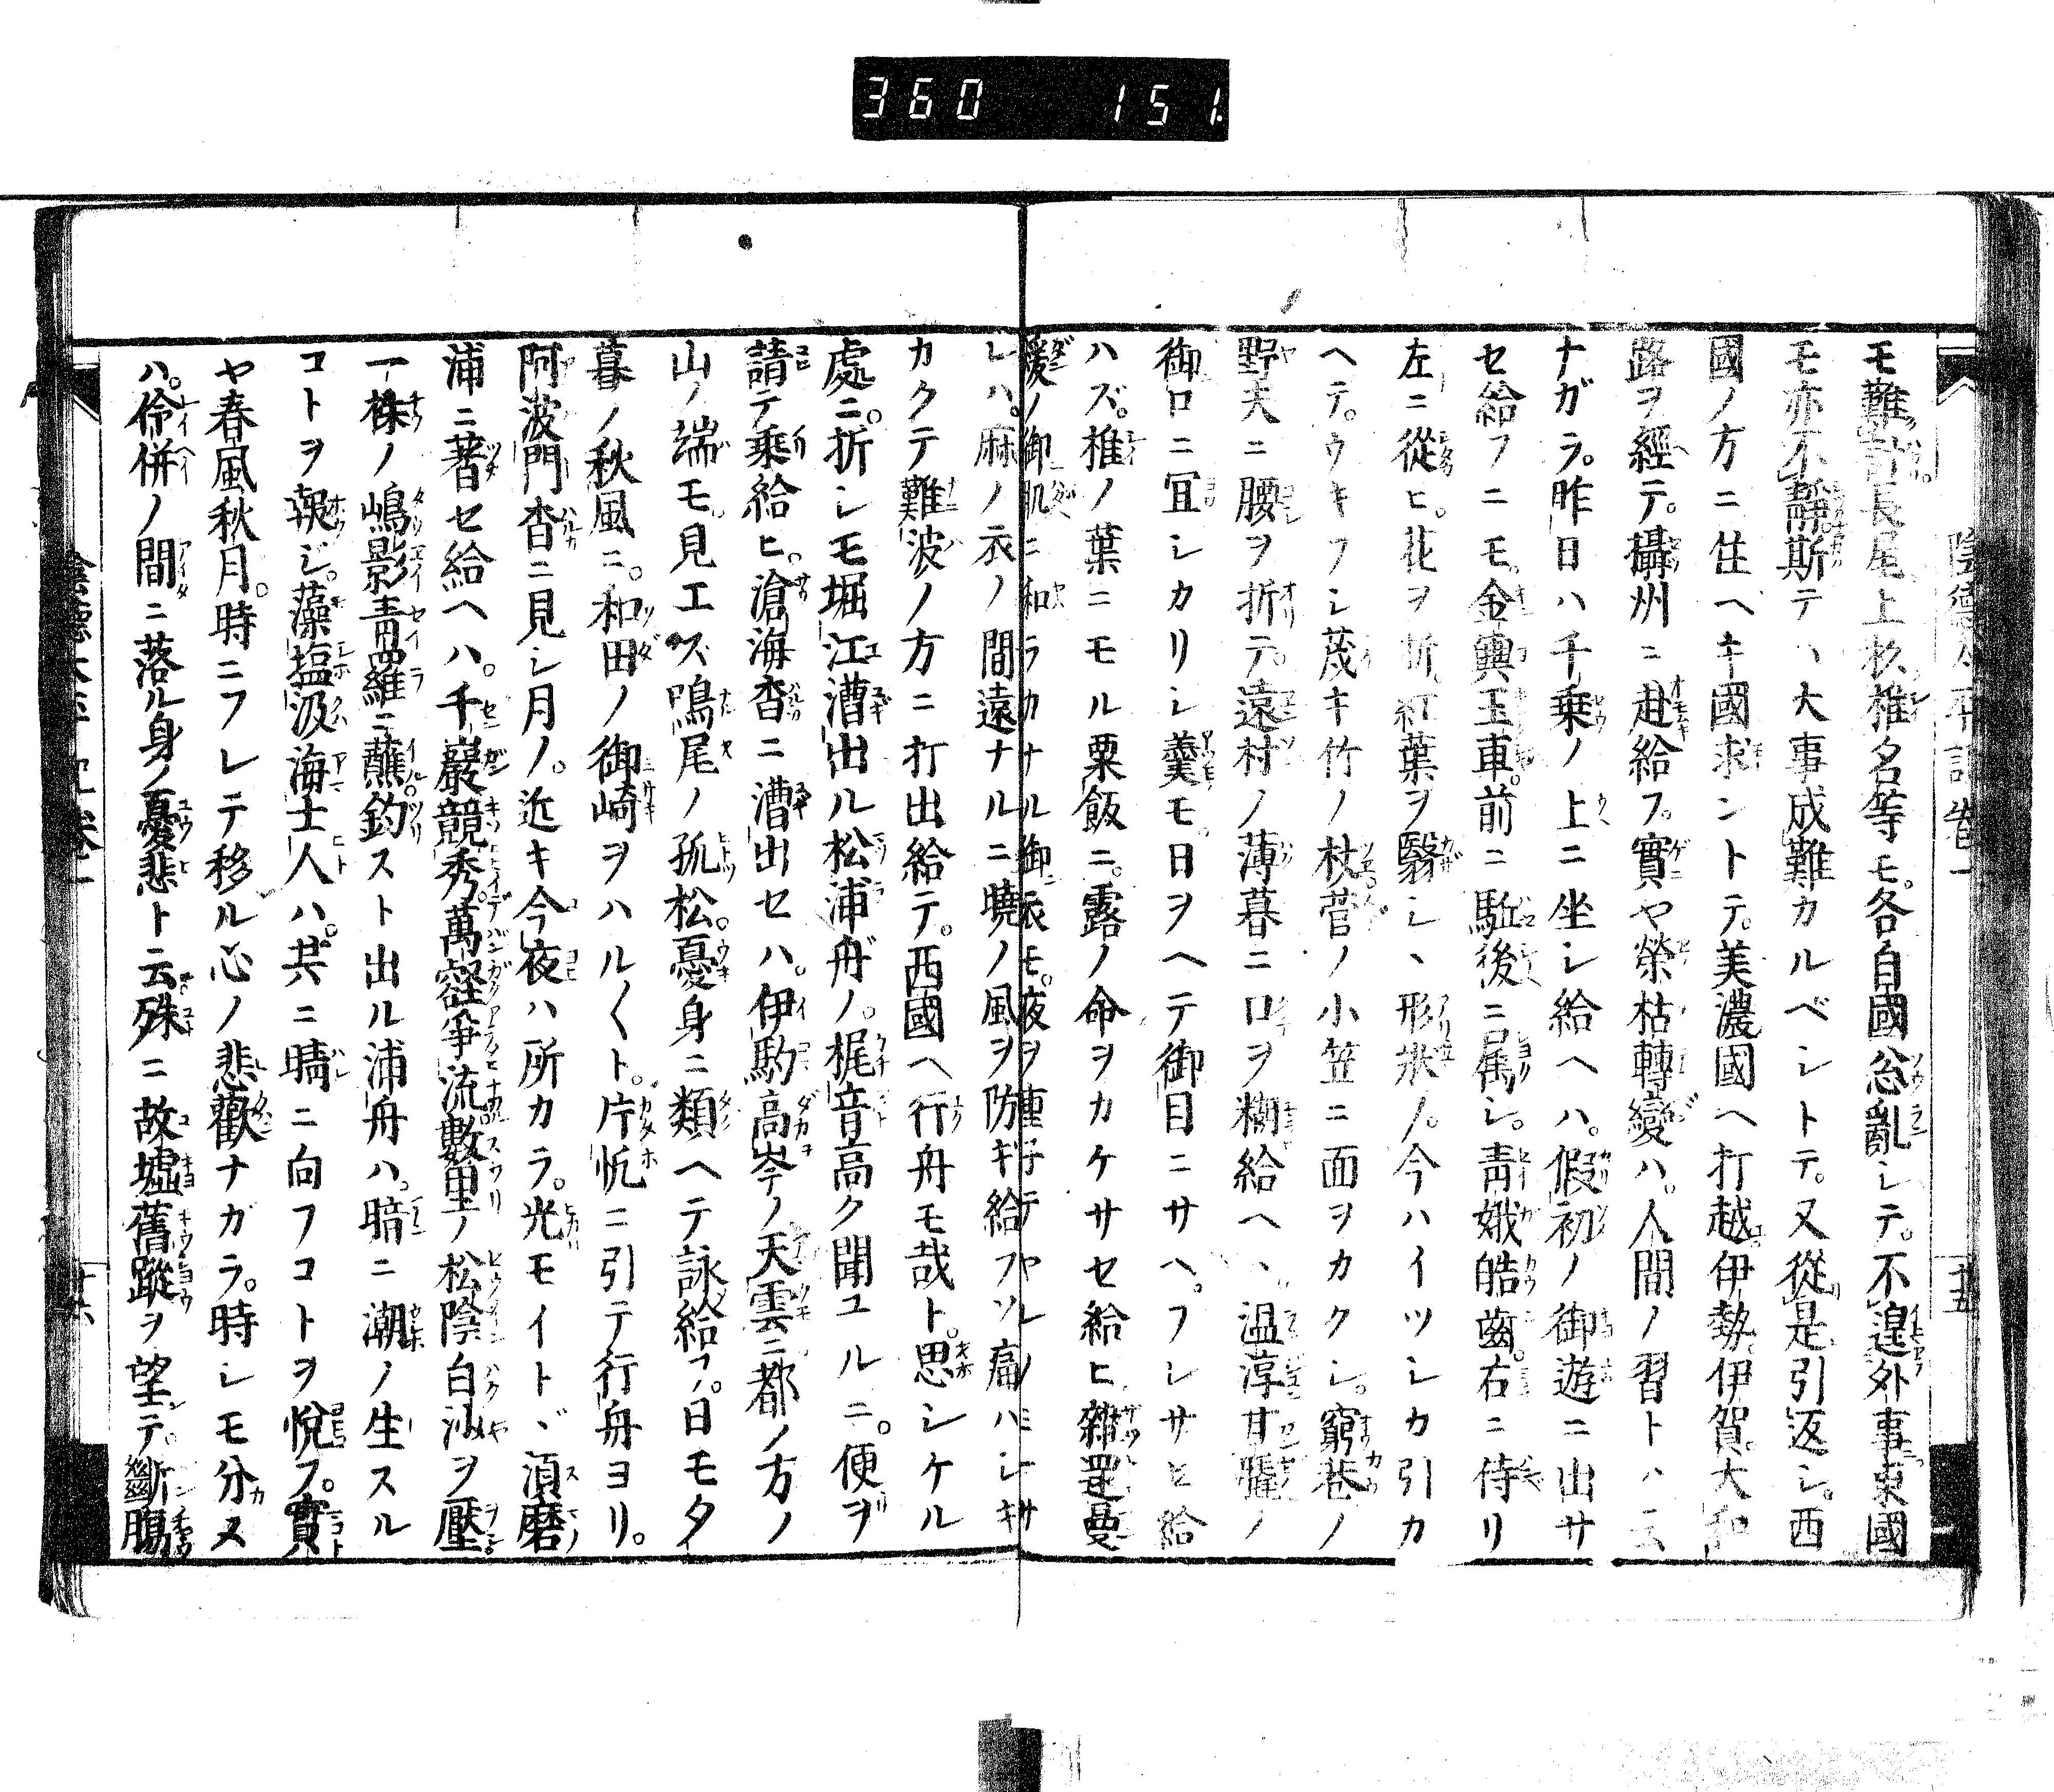 360 151.
モ難計長尾上杦椎名等モ。各自國忩亂シテ。不遑外事東國
モ亦不靜斯テハ大事成難カルベシトテ。又從是引返シ。西
國ノ方ニ住ヘキ國求ントテ。美濃國ヘ打越伊勢伊賀。大和
路ヲ經テ。攝州ニ赴給フ。實ヤ榮枯轉變ハ。人間ノ習トハ云
ナガラ。昨日ハ千乗ノ上ニ坐シ給ヘハ。假初ノ御遊ニ出サ
セ給フニモ。金輿玉車。前ニ駈後ニ属シ。青娥皓齒。右ニ侍リ
左ニ從ヒ。花ヲ折紅葉ヲ翳シ、形氷ノ。今ハイツシカ引カ
ヘテ。ウキフシ茂キ竹ノ杖菅ノ小笠ニ面ヲカクシ。窮巷ノ
野夫ニ腰ヲ折テ。遠村ノ薄暮ニ口ヲ糊給ヘハ、温淳甘膬ノ
御口ニ冝シカリシ羹モ。日ヲヘテ御目ニサヘ。フレサセ給
ハズ。椎ノ葉ニモル粟飯ニ。露ノ命ヲカケサセ給ヒ雜遝曼
煖ノ御肌ニ和ラカナル御衣モ。夜ヲ重子テヤレノミシサ
レハ。麻ノ衣ノ間遠ナルニ曉ノ風ヲ防キ給フソ痛ハシキ
カクテ難波ノ方ニ打出給テ。西國ヘ行舟モ哉ト。思シケル
處ニ。折シモ堀江漕出ル松浦舟ノ。梶音高ク聞ユルニ。便ヲ
請テ乗給ヒ。滄海杳ニ漕出セハ。伊駒高岑ノ天雲ニ都ノ方ノ
山ノ端モ。見エズ鳴尾ノ孤松。憂身ニ類ヘテ詠給フ。日モタ
暮ノ秋風ニ。和田ノ御崎ヲハル〱ト。片帆ニ引テ行舟ヨリ。
阿波門杳ニ見シ月ノ。近キ今夜ハ所カラ。光モイトヾ湏磨
浦ニ著セ給ヘハ。千巖競秀。萬壑爭流數里ノ松陰白沙ヲ壓
一株ノ嶋影青羅ニ蘸釣スト出ル浦舟ハ。暗ニ潮ノ生スル
コトヲ報シ。藻塩汲海士人ハ。共ニ晴ニ向フコトヲ悅フ。實
ヤ春風秋月。時ニフレテ移ル心ノ悲歡ナガラ。時シモ分ヌ
ハ。伶俜ノ間ニ落ル身ノ憂悲ト云殊ニ故墟舊蹤ヲ望テ。斷膓